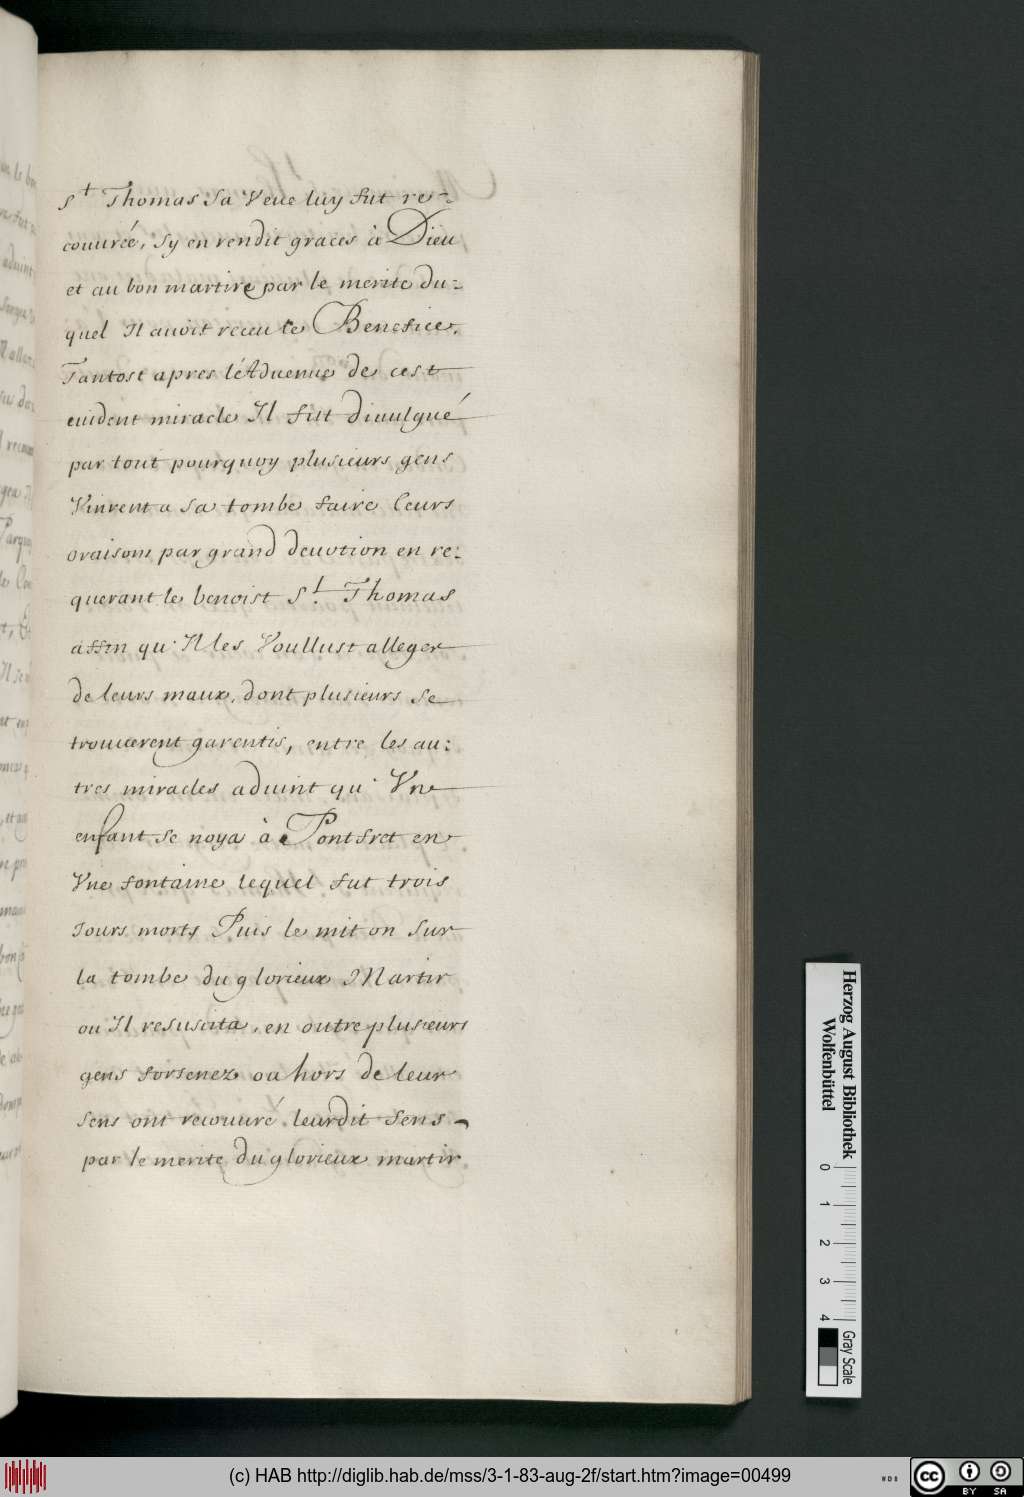 St Thomas sa veue luy fut re-
couurée, sy en rendit graces à Dieu
et au bon martire par le merite du-
quel Il auoit receu le Benefice,
Tantost apres lé Aduenue de cest
euident miracle Il fut diuulgué
par tout pourquoy plusieurs gens
Vinrent a sa tombe faire leurs
oraisons par grand deuotion en re:
querant le benoist St. Thomas
affin qu' Il les Voullust alleger
de leurs maux, dont plusieurs se
trouuerent garentis, entre les au:
tres miracles aduint qu' Vne
enfant se noya à Pontfret en
Vne fontaine lequel fut trois
Jours morts Puis le mit on sur
la tombe du glorieux Martir
ou Il resuscita, en outre plusieurs
gens forsenez ou hors de leur
sens ont recouuré leurdit sens
par le merite du glorieux martir
Herzog August Bibliothek
Wolfenbüttel
0 1 2 3 4
Gray Scale
(c) HAB http://diglib.hab.de/mss/3-1-83-aug-2f/start.htm?image=00499
WDB
cc BY SA